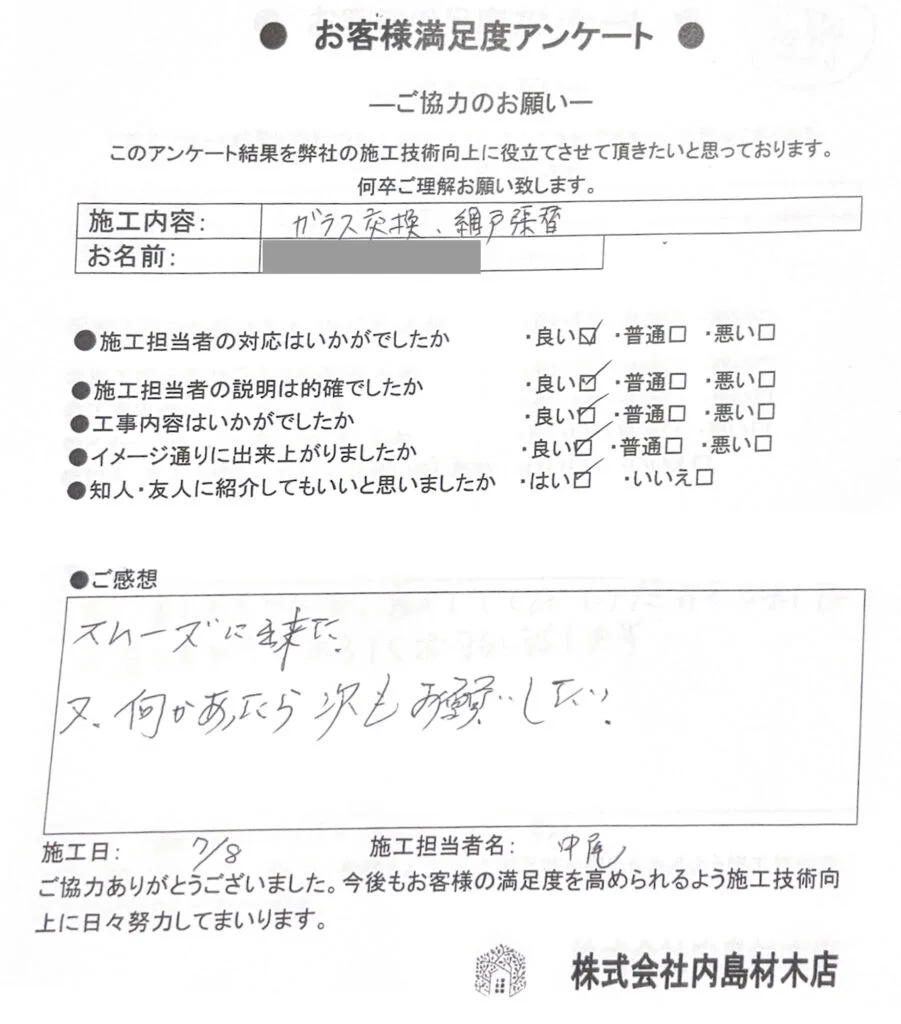 ● お客様満足度アンケート ●
―ご協力のお願い―
このアンケート結果を弊社の施工技術向上に役立てさせて頂きたいと思っております。
何卒ご理解お願い致します。
施工内容: ガラス交換、網戸張替
お名前:
●施工担当者の対応はいかがでしたか ・良い☑ ・普通□ ・悪い□
●施工担当者の説明は的確でしたか ・良い☑ ・普通□ ・悪い□
●工事内容はいかがでしたか ・良い☑ ・普通□ ・悪い□
●イメージ通りに出来上がりましたか ・良い☑ ・普通□ ・悪い□
●知人・友人に紹介してもいいと思いましたか ・はい☑ ・いいえ□
●ご感想
スムーズに出来た
又、何かあったら次もお願いしたい。
施工日: 7/8 施工担当者名: 中尾
ご協力ありがとうございました。今後もお客様の満足度を高められるよう施工技術向
上に日々努力してまいります。
株式会社内島材木店